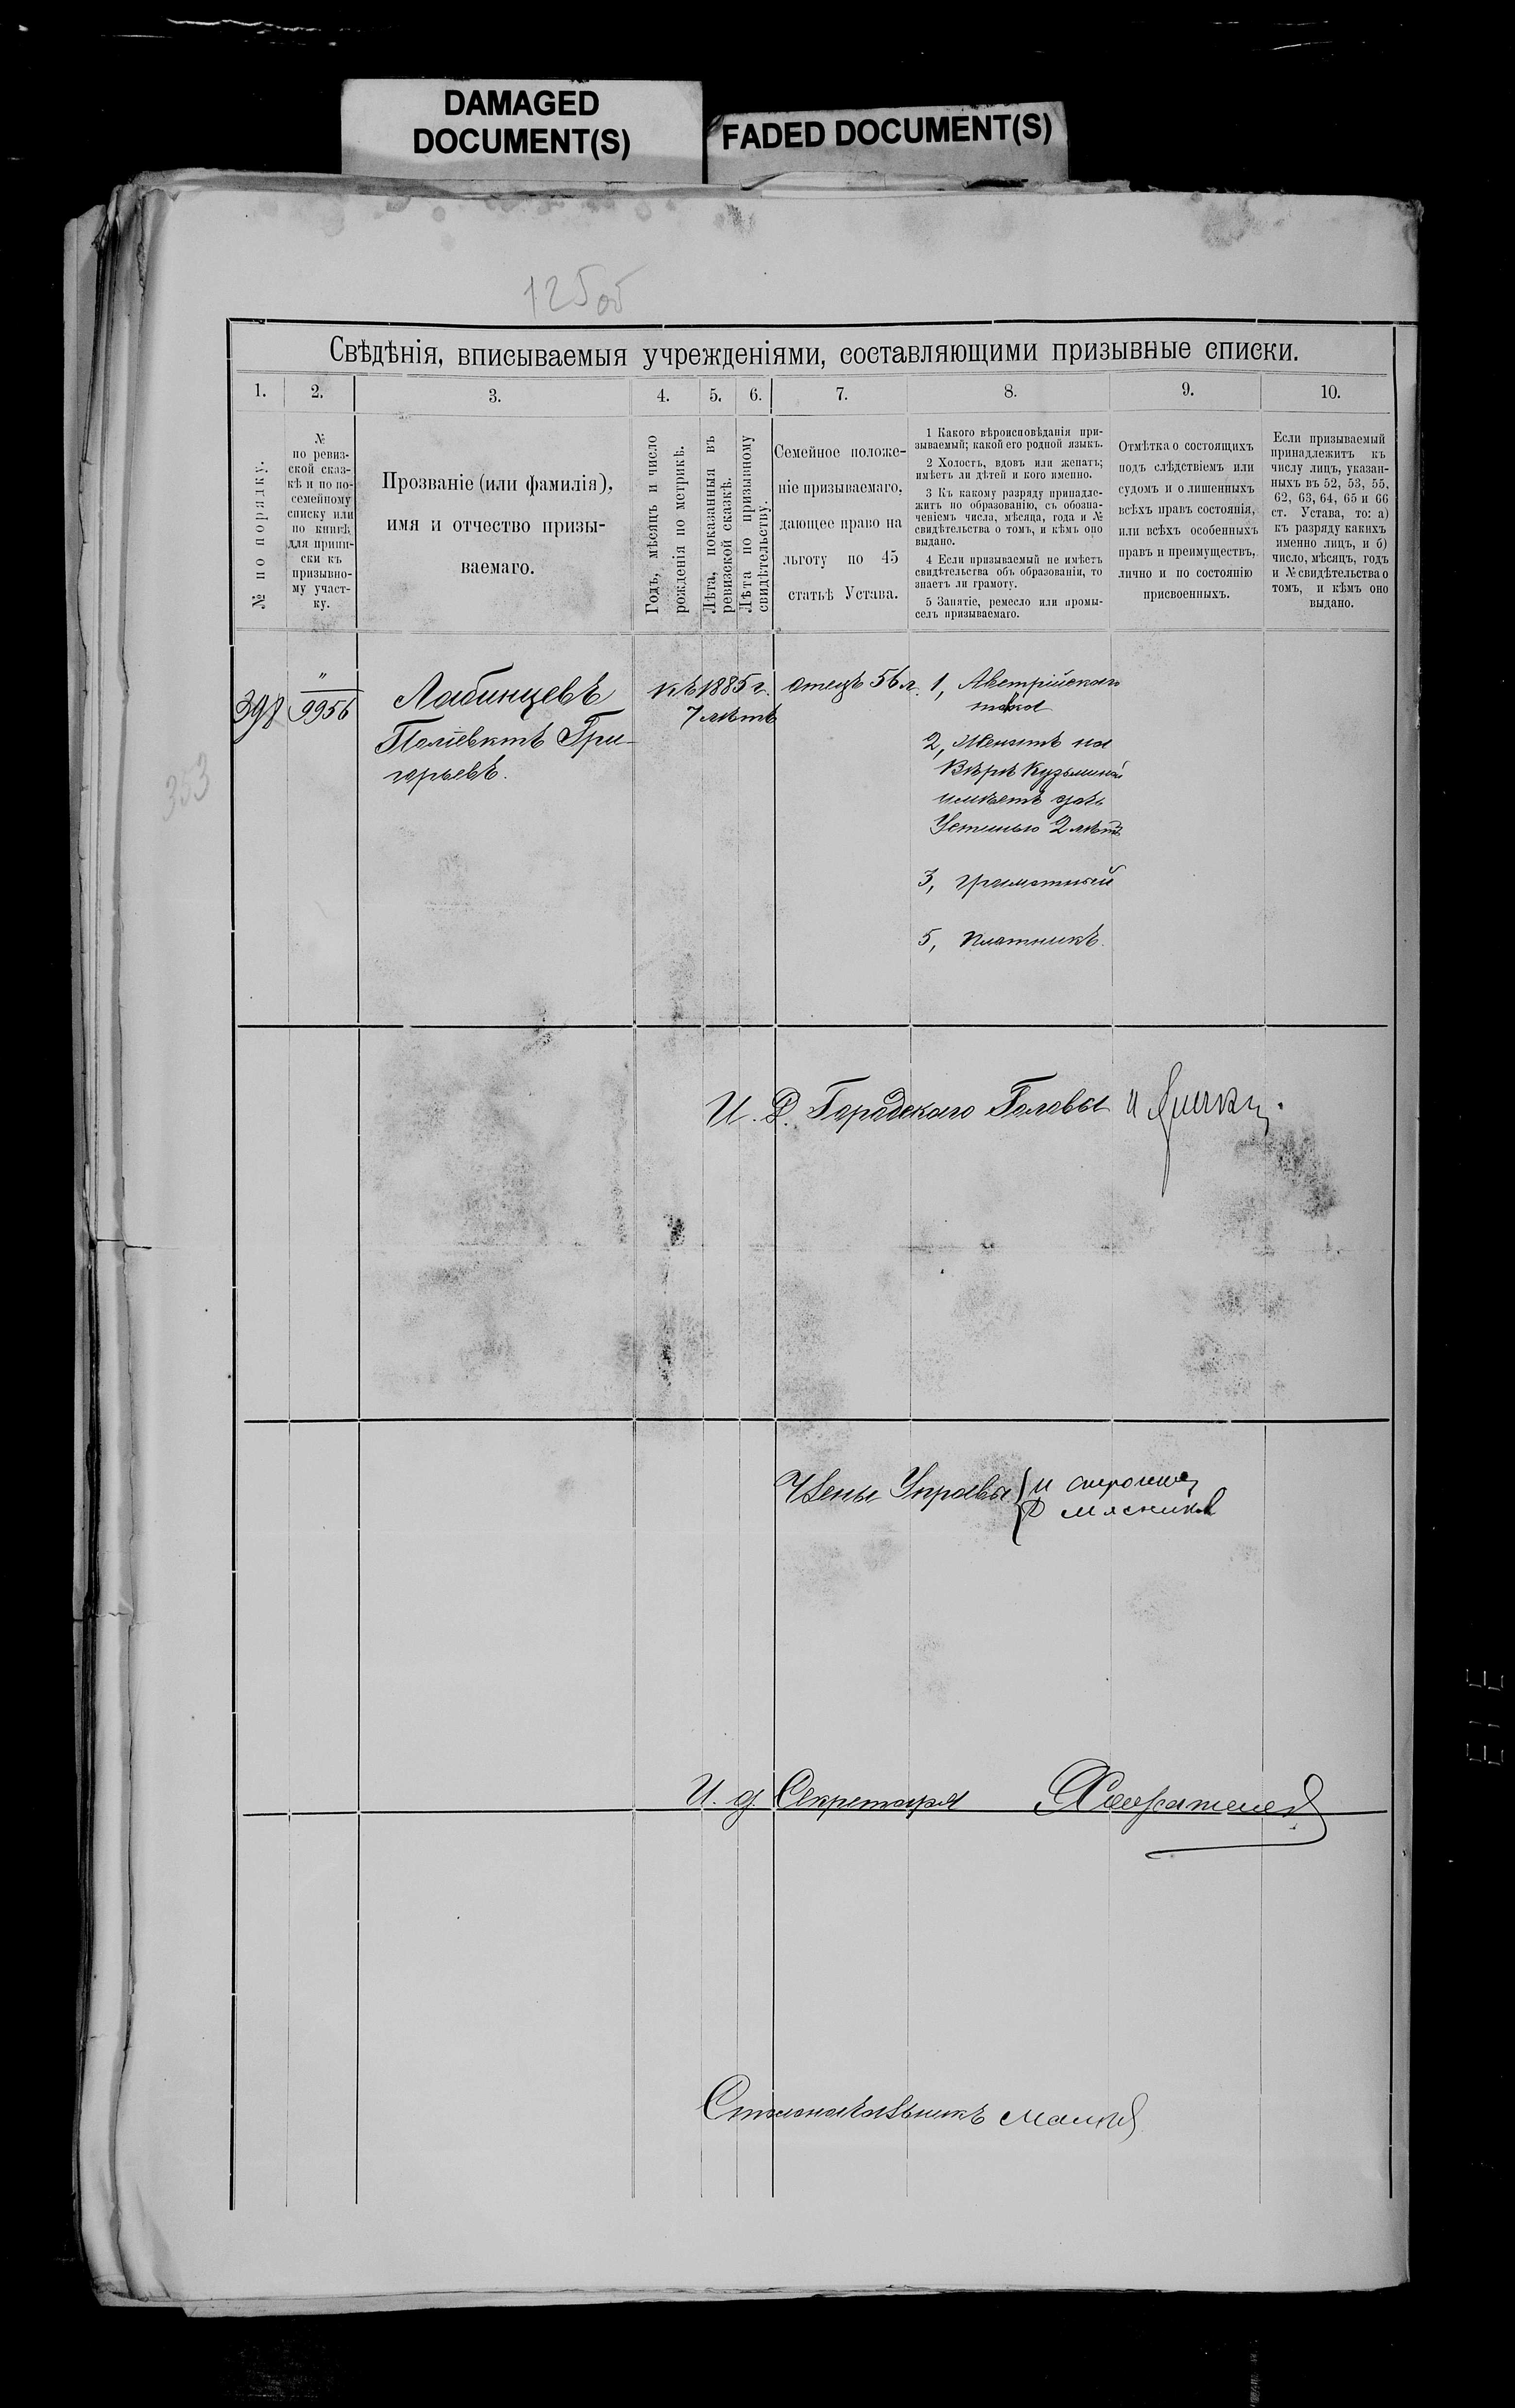 DAMAGED
DOCUMENT(S)
FADED DOCUMENT(S)
125об
Свѣдѣнія, вписываемыя учрежденіями, составляющими призывные списки.
1.
2.
3.
4.
5.
6.
7.
8.
9.
10.
№ по порядку.
№
по ревиз-
ской сказ-
кѣ и по по-
семейному
списку или
по книгѣ
для припи-
ски къ
призывно-
му участ-
ку.
Прозваніе (или фамилія),
имя и отчество призы-
ваемаго.
Годъ, мѣсяцъ и число
рожденія по метрикѣ.
Лѣта, показанныя въ
ревизской сказкѣ.
Лѣта по призывному
свидѣтельству.
Семейное положе-
ніе призываемаго,
дающее право на
льготу по 45
статьѣ Устава.
1 Какого вѣроисповѣданія при-
зываемый; какой его родной языкъ.
2 Холостъ, вдовъ или женатъ;
имѣетъ ли дѣтей и кого именно.
3 Къ какому разряду принадле-
житъ по образованію, съ обозна-
ченіемъ числа, мѣсяца, года и №
свидѣтельства о томъ, и кѣмъ оно
выдано.
4 Если призываемый не имѣетъ
свидѣтельства объ образованіи, то
знаетъ ли грамоту.
5 Занятіе, ремесло или промы-
селъ призываемаго.
Отмѣтка о состоящихъ
подъ слѣдствіемъ или
судомъ и о лишенныхъ
всѣхъ правъ состоянія,
или всѣхъ особенныхъ
правъ и преимуществъ,
лично и по состоянію
присвоенныхъ.
Если призываемый
принадлежитъ къ
числу лицъ, указан-
ныхъ въ 52, 53, 55,
62, 63, 64, 65 и 66
ст. Устава, то: а)
къ разряду какихъ
именно лицъ, и б)
число, мѣсяцъ, годъ
и № свидѣтельства о
томъ, и кѣмъ оно
выдано.
398
"
9956
Лабинцевъ
Поліевктъ Гри-
горьевъ.
къ 1885 г.
7 лѣтъ
отецъ 56 л.
1, Австрійскаго
толка
2, Женатъ на
Вѣрѣ Кузьминой
имѣетъ дочь
Устинью 2 лѣтъ
3, грамотный
5, Плотникъ.
353
И. Д. Городского Головы
Члены Управы
Ф Мясников
И. д. Секретаря
Столоначальникъ